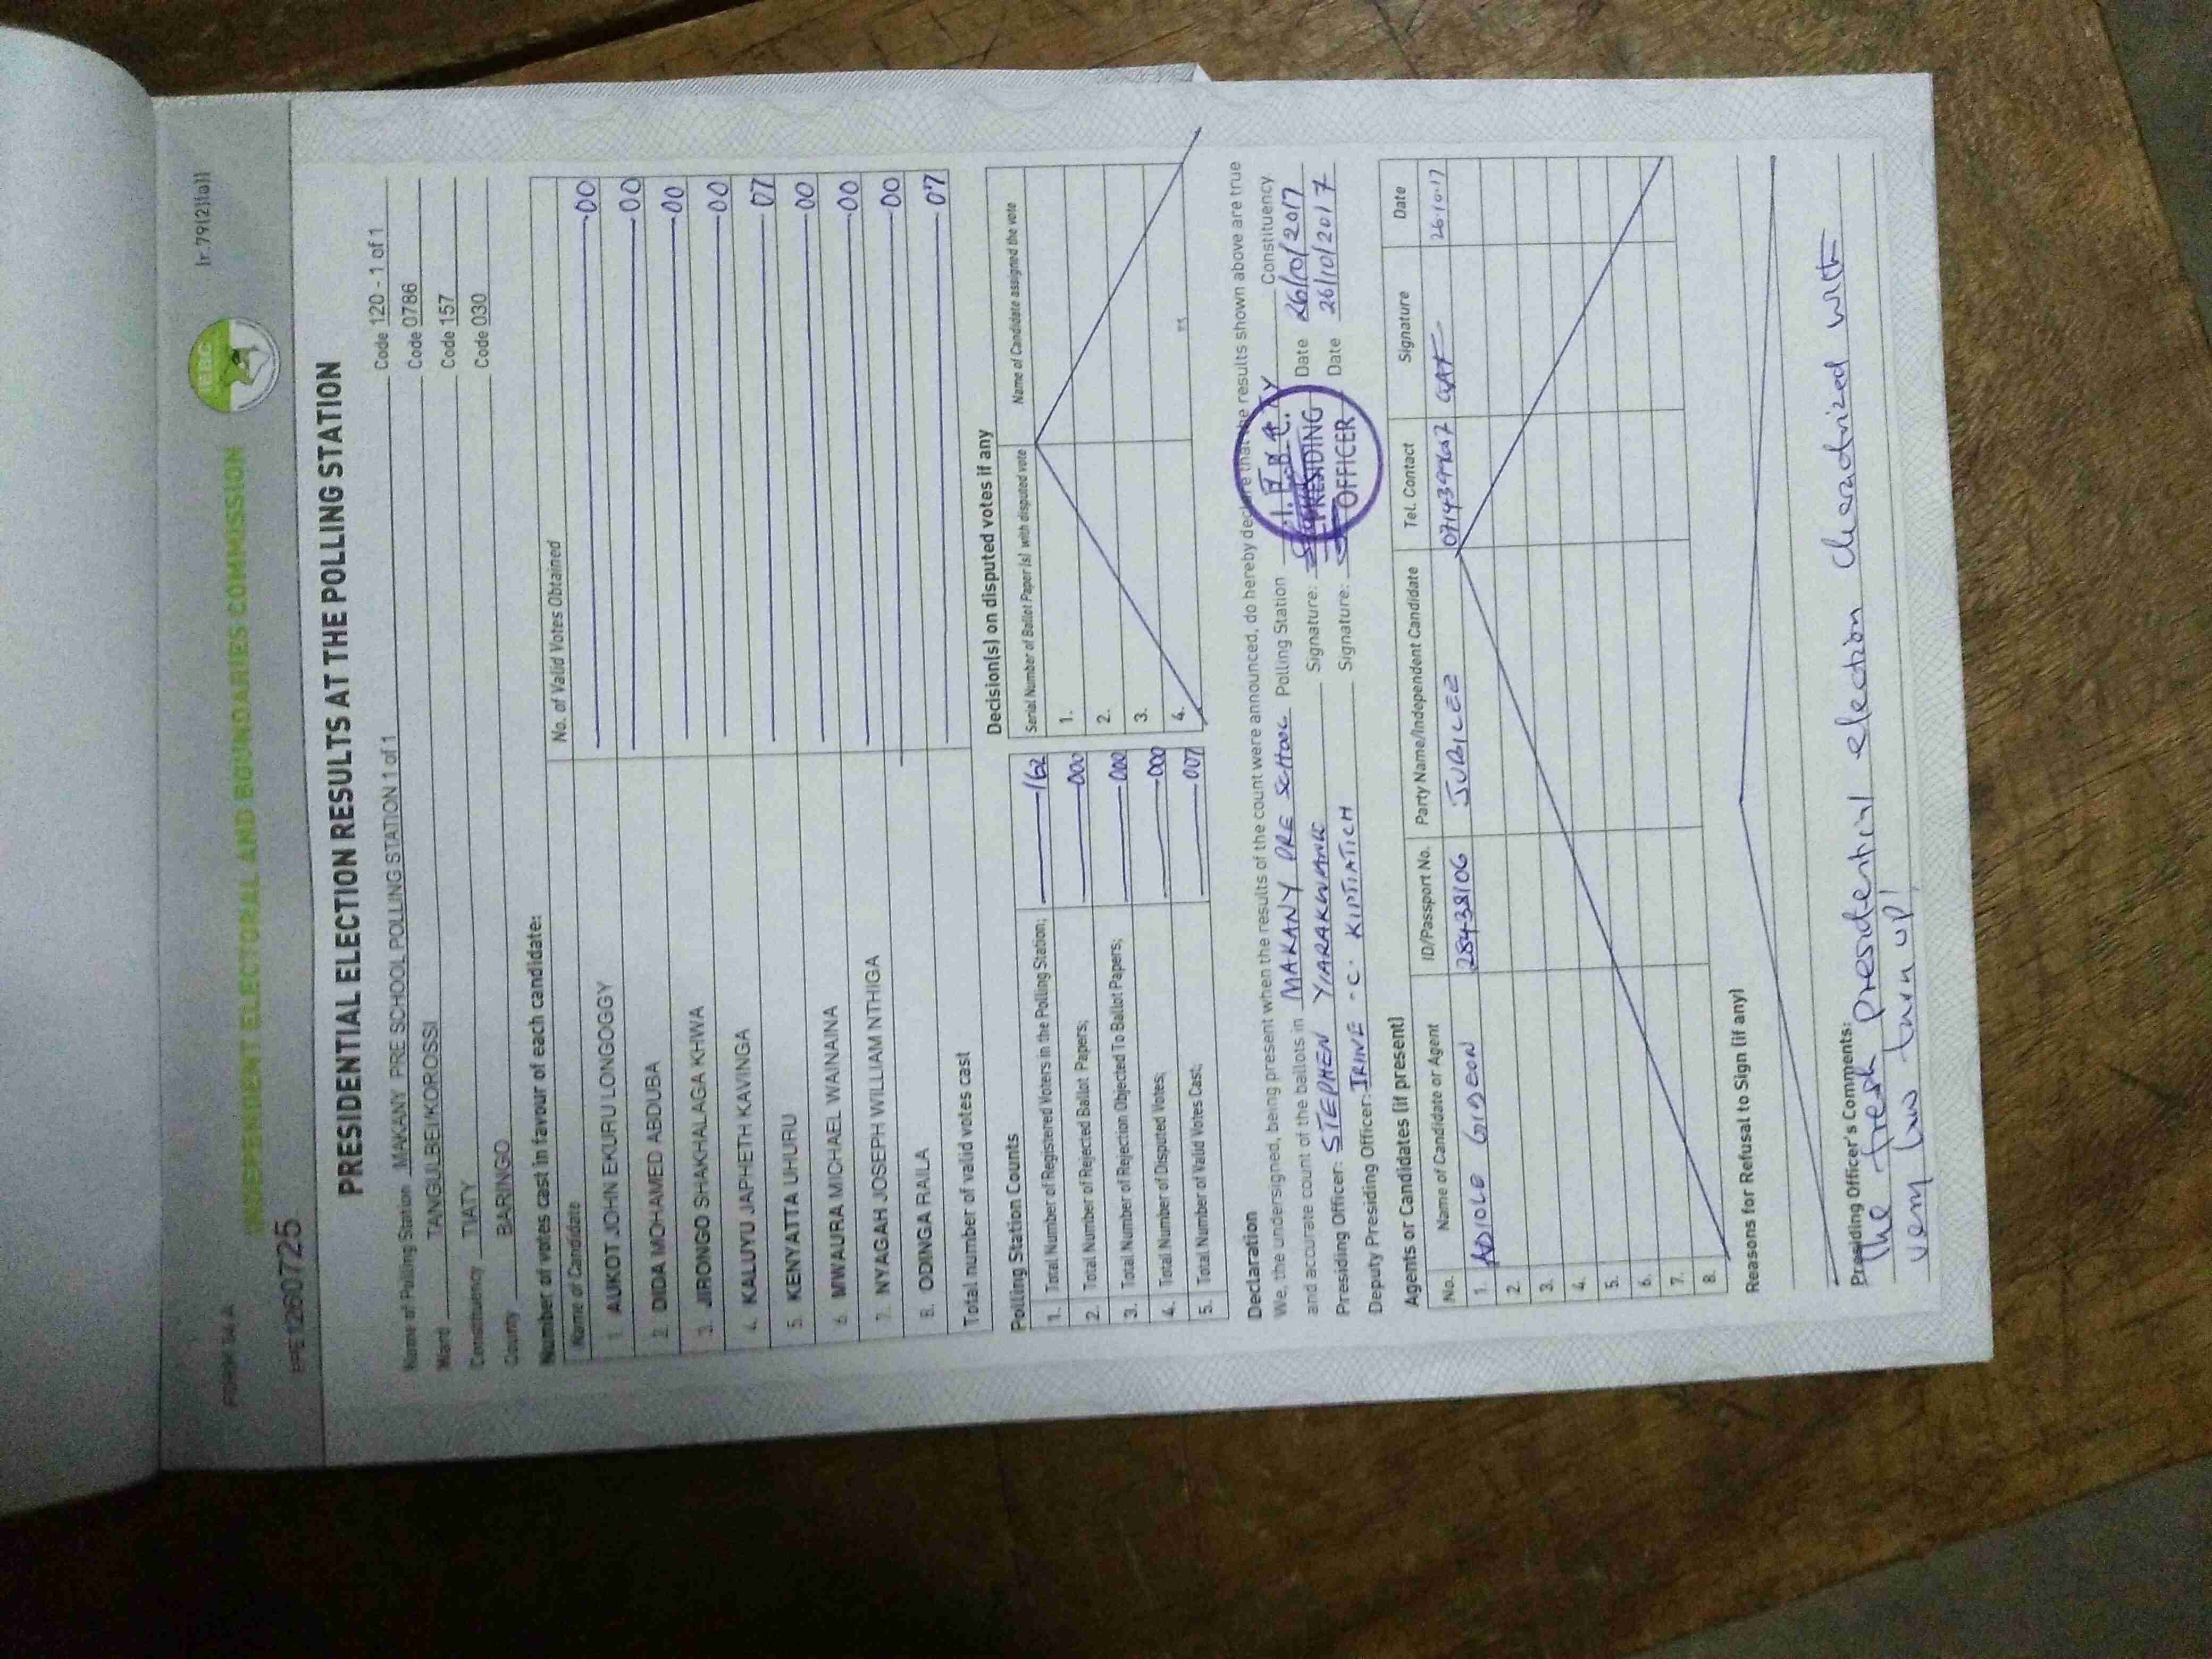 FORM 34 A
[r.79(2)(a)]
INDEPENDENT ELECTORAL AND BOUNDARIES COMMISSION
IEBC
PRE1260725
PRESIDENTIAL ELECTION RESULTS AT THE POLLING STATION
Name of Polling Station MAKANY PRE SCHOOL POLLING STATION 1 of 1 Code 120 - 1 of 1
Ward TANGULBEI/KOROSSI Code 0786
Constituency TIATY Code 157
County BARINGO Code 030
Number of votes cast in favour of each candidate:
Name of Candidate No. of Valid Votes Obtained
1. AUKOT JOHN EKURU LONGOGGY 00
2. DIDA MOHAMED ABDUBA 00
3. JIRONGO SHAKHALAGA KHWA 00
4. KALUYU JAPHETH KAVINGA 00
5. KENYATTA UHURU 07
6. MWAURA MICHAEL WAINAINA 00
7. NYAGAH JOSEPH WILLIAM NTHIGA 00
8. ODINGA RAILA 00
Total number of valid votes cast 07
Polling Station Counts
1. Total Number of Registered Voters in the Polling Station; 162
2. Total Number of Rejected Ballot Papers; 000
3. Total Number of Rejection Objected To Ballot Papers; 000
4. Total Number of Disputed Votes; 000
5. Total Number of Valid Votes Cast; 007
Decision(s) on disputed votes if any
Serial Number of Ballot Paper(s) with disputed vote Name of Candidate assigned the vote
1.
2.
3.
4.
Declaration
We, the undersigned, being present when the results of the count were announced, do hereby declare that the results shown above are true
and accurate count of the ballots in MAKANY PRE SCHOOL Polling Station TIATY Constituency
Presiding Officer: STEPHEN YIARAKWANG Signature: Date 26/10/2017
Deputy Presiding Officer: IRINE C. KIPTIATICH Signature: Date 26/10/2017
I.E.B.C.
PRESIDING
OFFICER
Agents or Candidates (if present)
No. Name of Candidate or Agent ID/Passport No. Party Name/Independent Candidate Tel. Contact Signature Date
1. ADIOLO GIDEON 28438106 JUBILEE 26.10.17
2.
3.
4.
5.
6.
7.
8.
Reasons for Refusal to Sign (if any)
Presiding Officer's Comments:
The fresh Presidential election charactrized with
very low turn up!